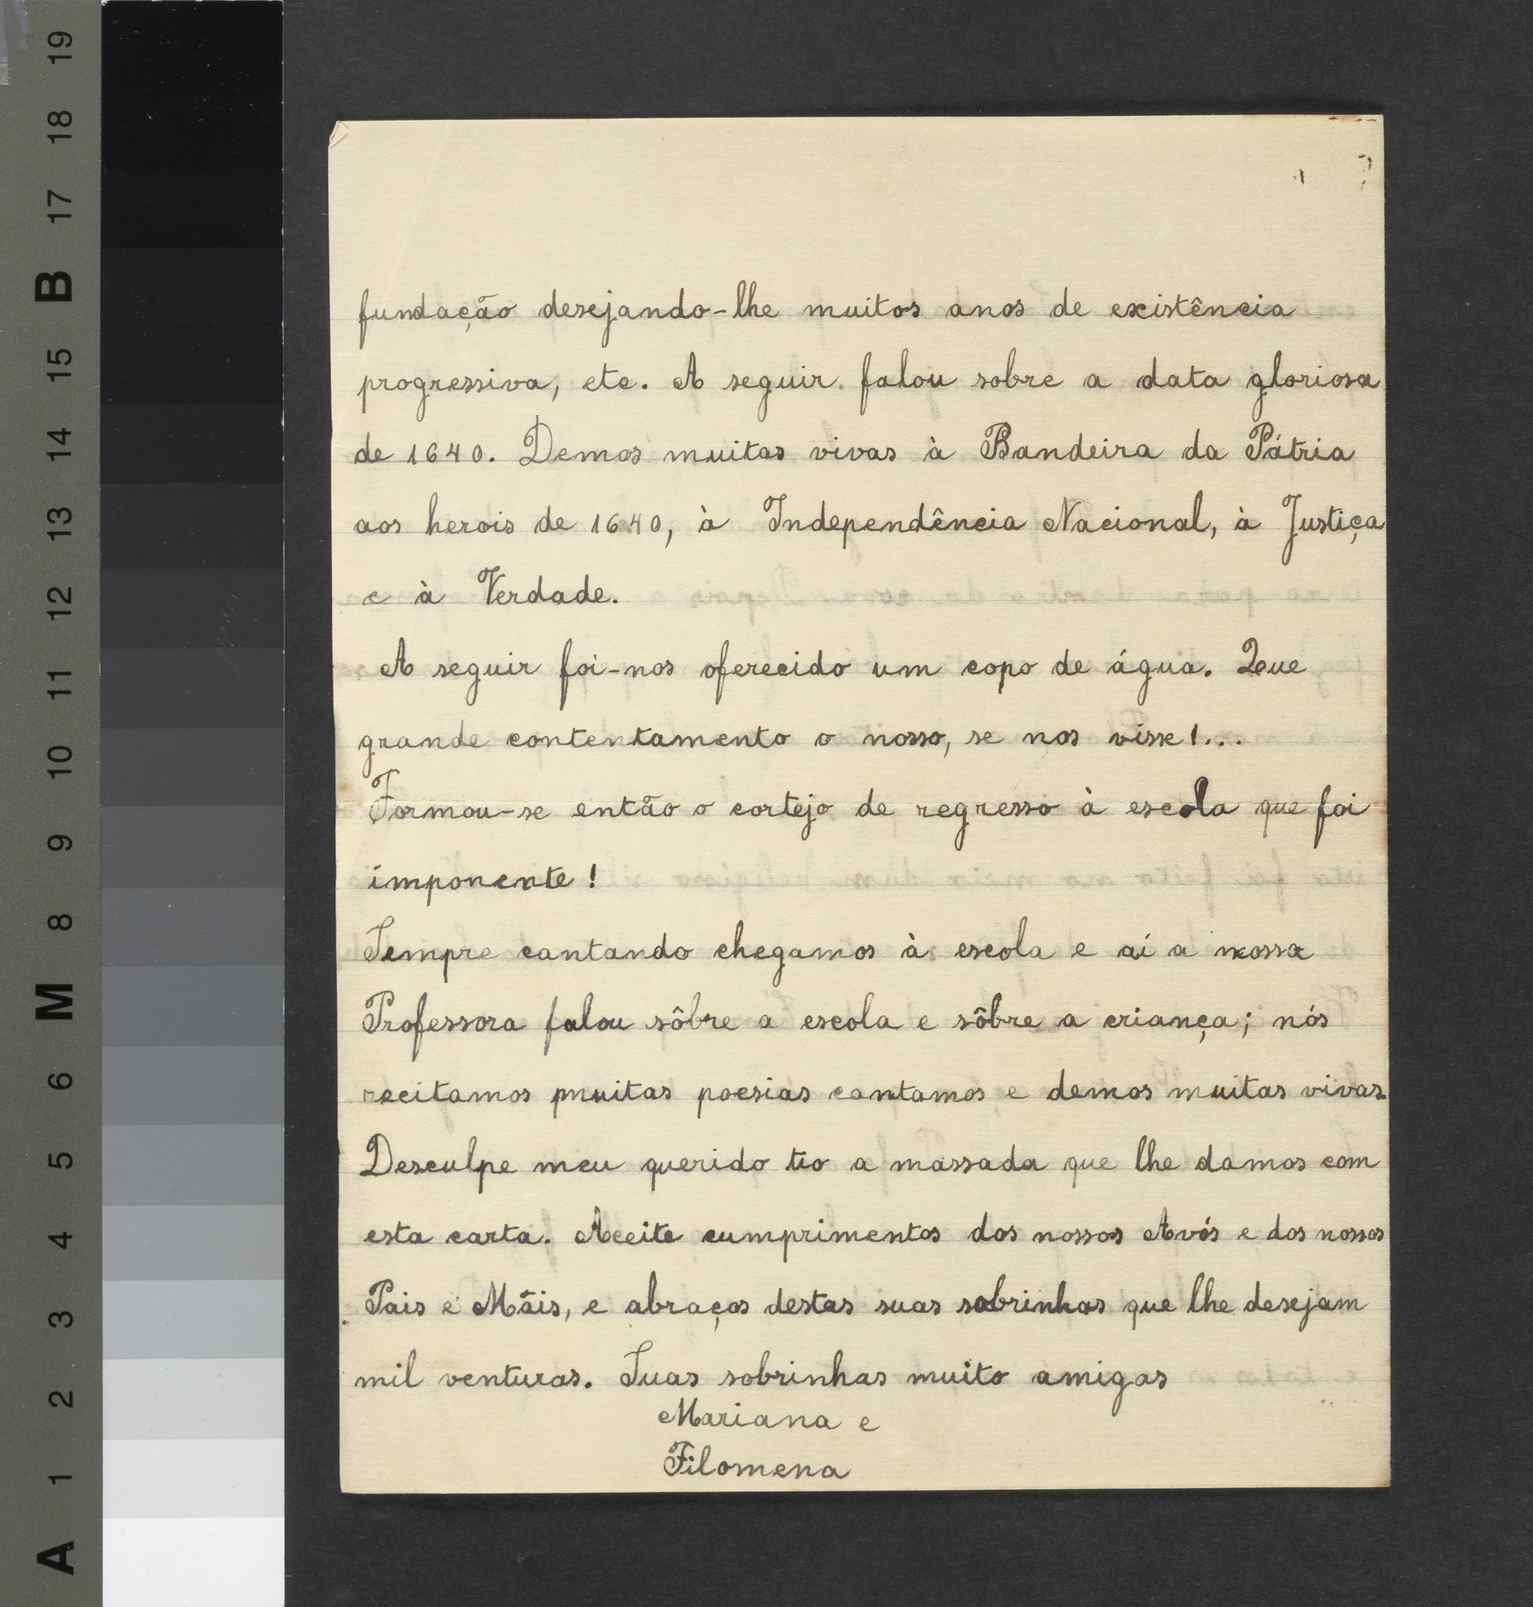 19
18
17
B
16
15
14
13
12
11
10
9
8
M
7
6
5
4
3
2
1
A
fundação desejando-lhe muitos anos de existência
progressiva, etc. A seguir falou sobre a data gloriosa
de 1640. Demos muitas vivas à Bandeira da Pátria
aos herois de 1640, à Independência Nacional, à Justiça
e à Verdade.
A seguir foi-nos oferecido um copo de água. Que
grande contentamento o nosso, se nos visse!...
Formou-se então o cortejo de regresso à escola que foi
imponente!
Sempre cantando chegamos à escola e aí a nossa
Professora falou sôbre a escola e sôbre a criança; nós
recitamos muitas poesias cantamos e demos muitas vivas.
Desculpe meu querido tio a massada que lhe damos com
esta carta. Aceite cumprimentos dos nossos Avós e dos nossos
Pais e Mãis, e abraços destas suas sobrinhas que lhe desejam
mil venturas. Suas sobrinhas muito amigas
Mariana e
Filomena